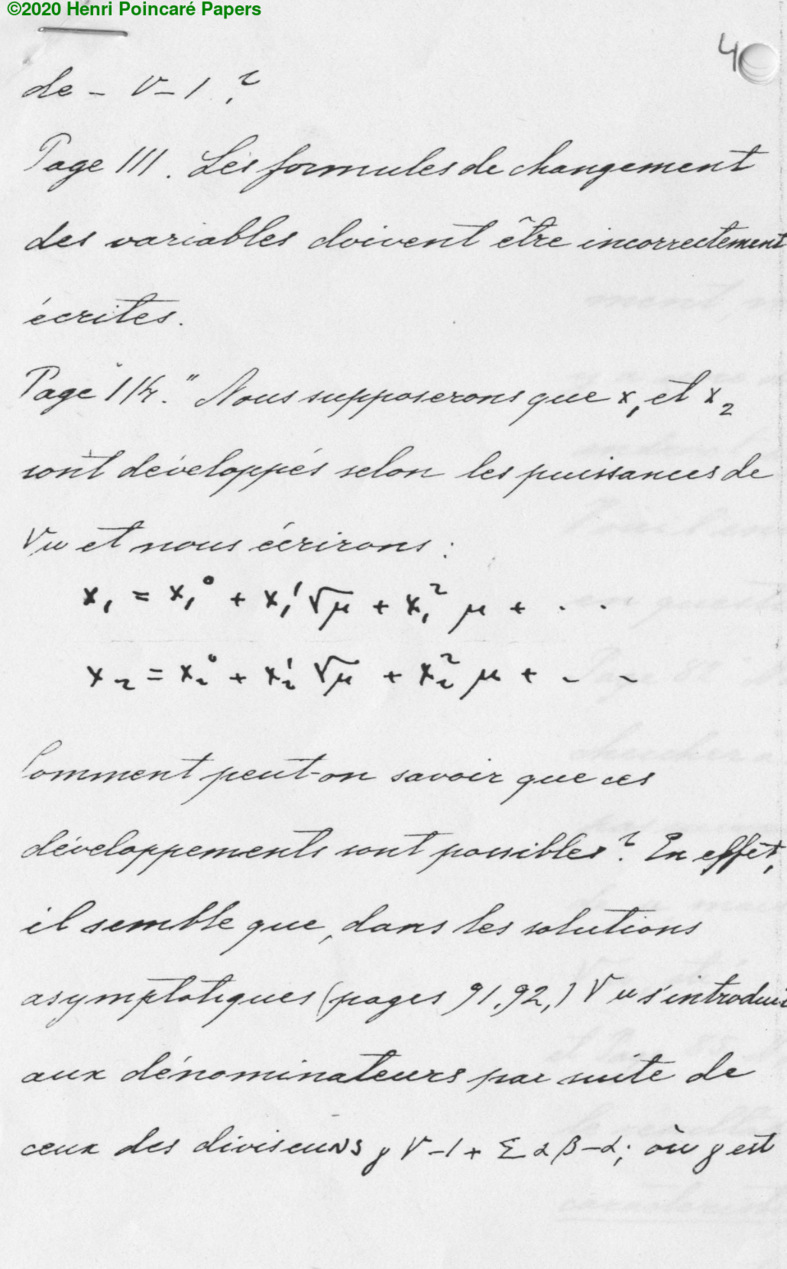 ©2020 Henri Poincaré Papers
4
de - √-1 ?
Page 111. Les formules de changement
des variables doivent être incorrectement
écrites.
Page 114. " Nous supposerons que x₁ et x₂
sont développés selon les puissances de
√μ et nous écrirons :
x₁ = x₁⁰ + x₁¹ √μ + x₁² μ + . .
x₂ = x₂⁰ + x₂¹ √μ + x₂² μ + - -
Comment peut-on savoir que ces
développements sont possibles ? En effet,
il semble que, dans les solutions
asymptotiques (pages 91,92,) √μ s'introduit
aux dénominateurs par suite de
ceux des diviseurs γ √-1 + Σ α β - αᵢ où γ est